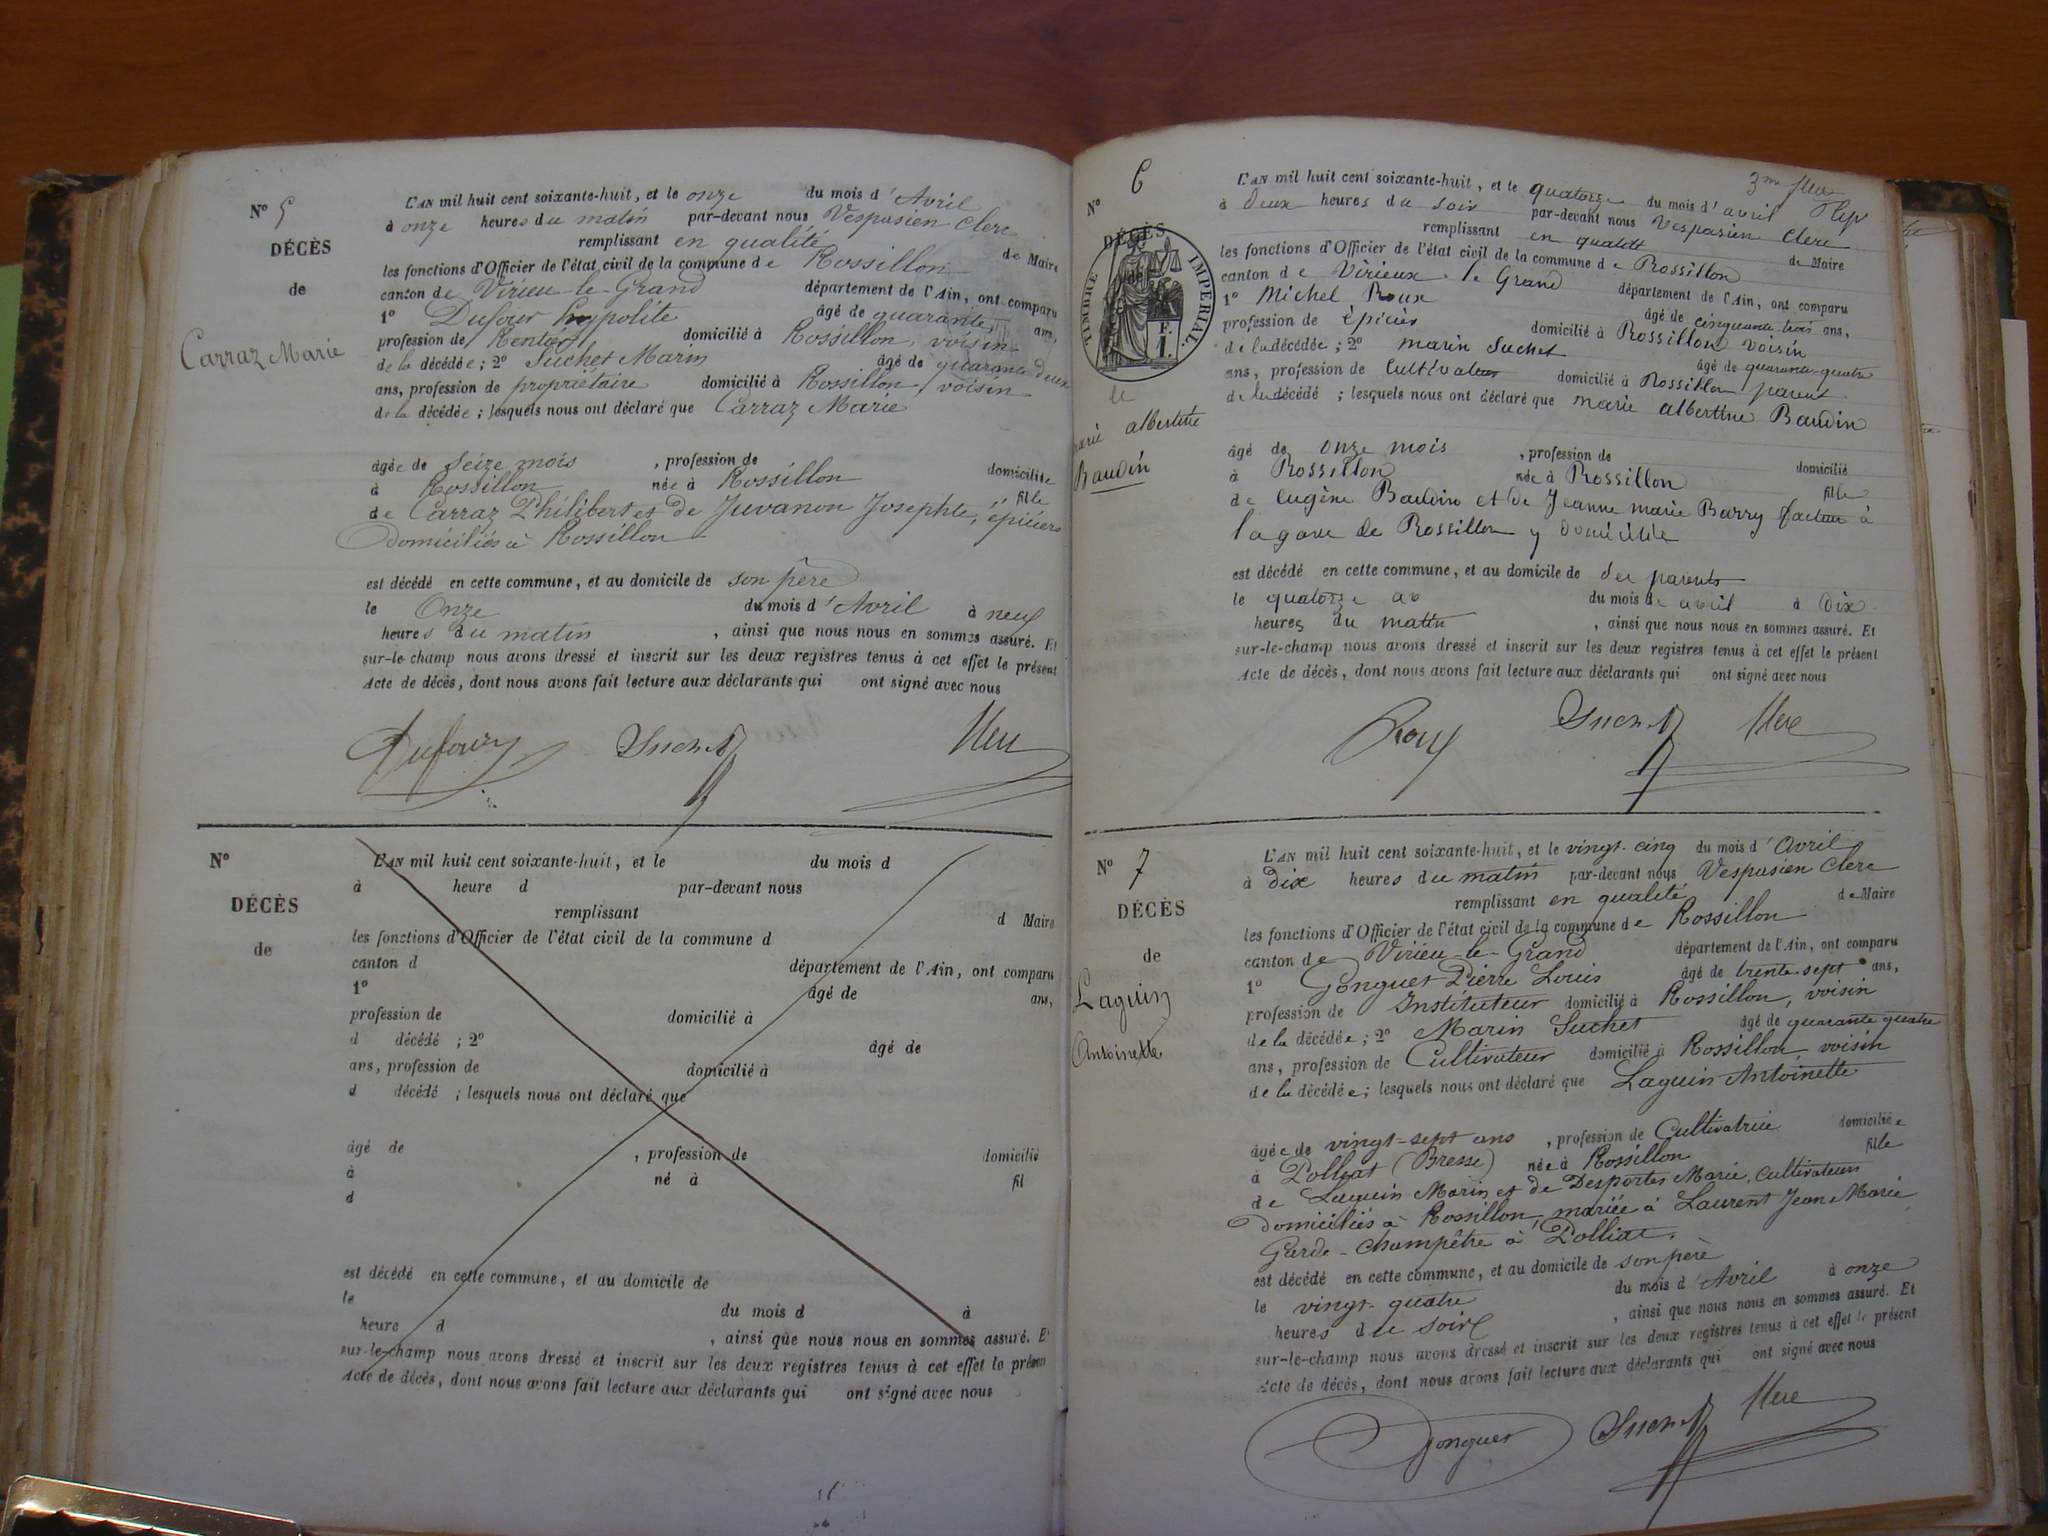 N° 5
DÉCÈS
de
Carraz Marie
L'AN mil huit cent soixante-huit, et le onze du mois d'Avril
à onze heures du matin par-devant nous Vespasien Clerc
remplissant en qualité de Maire
les fonctions d'Officier de l'état civil de la commune de Rossillon
canton de Virieu-le-Grand département de l'Ain, ont comparu
1° Dufour hyppolite âgé de quarante ans,
profession de Rentier domicilié à Rossillon, voisin
de la décédée; 2° Suchet Marin âgé de quarante deux
ans, profession de propriétaire domicilié à Rossillon, voisin
de la décédée; lesquels nous ont déclaré que Carraz Marie
âgée de Seize mois, profession de domiciliée
à Rossillon née à Rossillon fille
de Carraz Philibert et de Juvanon Josephte, épiciers
Domiciliés à Rossillon
est décédé en cette commune, et au domicile de son père
le Onze du mois d'Avril à neuf
heures du matin, ainsi que nous nous en sommes assuré. Et
sur-le-champ nous avons dressé et inscrit sur les deux registres tenus à cet effet le présent
Acte de décès, dont nous avons fait lecture aux déclarants qui ont signé avec nous
Dufour Suchet Clerc
N°
DÉCÈS
de
L'AN mil huit cent soixante-huit, et le du mois d
à heure d par-devant nous
remplissant d Maire
les fonctions d'Officier de l'état civil de la commune d
canton d département de l'Ain, ont comparu
1° âgé de ans,
profession de domicilié à
d décédé ; 2° âgé de
ans, profession de domicilié à
d décédé ; lesquels nous ont déclaré que
âgé de , profession de domicilié
à né à fil
d
est décédé en cette commune, et au domicile de
le du mois d à
heure d , ainsi que nous nous en sommes assuré. E
sur-le-champ nous avons dressé et inscrit sur les deux registres tenus à cet effet le présen
Acte de décès, dont nous avons fait lecture aux déclarants qui ont signé avec nous
3me
N° 6
DÉCÈS
de
TIMBRE IMPERIAL.
F. 1.
marie albertine
Baudin
L'AN mil huit cent soixante-huit, et le quatorze du mois d'avril
à Deux heures du soir par-devant nous Vespasien Clerc
remplissant en qualité de Maire
les fonctions d'Officier de l'état civil de la commune de Rossillon
canton de Virieux le Grand département de l'Ain, ont comparu
1° Michel Roux âgé de cinquante trois ans,
profession de épicier domicilié à Rossillon voisin
de la décédée; 2° marin Suchet âgé de quarante-quatre
ans, profession de Cultivateur domicilié à Rossillon parent
de la décédé ; lesquels nous ont déclaré que marie albertine Baudin
âgé de onze mois, profession de domicilié
à Rossillon née à Rossillon fille
de eugène Baudin et de Jeanne marie Barry facteur à
la gare de Rossillon y domicilié
est décédé en cette commune, et au domicile de des parents
le quatorze du mois de avril à dix
heures du matin, ainsi que nous nous en sommes assuré. Et
sur-le-champ nous avons dressé et inscrit sur les deux registres tenus à cet effet le présent
Acte de décès, dont nous avons fait lecture aux déclarants qui ont signé avec nous
Roux Suchet Clerc
N° 7
DÉCÈS
de
Laguin
Antoinette
L'AN mil huit cent soixante-huit, et le vingt-cinq du mois d'Avril
à dix heures du matin par-devant nous Vespasien Clerc
remplissant en qualité de Maire
les fonctions d'Officier de l'état civil de la commune de Rossillon
canton de Virieu-le-Grand département de l'Ain, ont comparu
1° Gonguet Pierre Louis âgé de trente-sept ans,
profession de Instituteur domicilié à Rossillon, voisin
de la décédée; 2° Marin Suchet âgé de quarante quatre
ans, profession de Cultivateur domicilié à Rossillon, voisin
de la décédée; lesquels nous ont déclaré que Laguin Antoinette
âgée de vingt-sept ans, profession de Cultivatrice domiciliée
à Polliat (Bresse) née à Rossillon fille
de Laguin Marin et de Desportes Marie, Cultivateurs
Domiciliés à Rossillon, mariée à Laurent Jean Marie
Garde-Champêtre à Polliat.
est décédé en cette commune, et au domicile de son père
le vingt-quatre du mois d'Avril à onze
heures du soir, ainsi que nous nous en sommes assuré. Et
sur-le-champ nous avons dressé et inscrit sur les deux registres tenus à cet effet le présent
Acte de décès, dont nous avons fait lecture aux déclarants qui ont signé avec nous
Gonguet Suchet Clerc